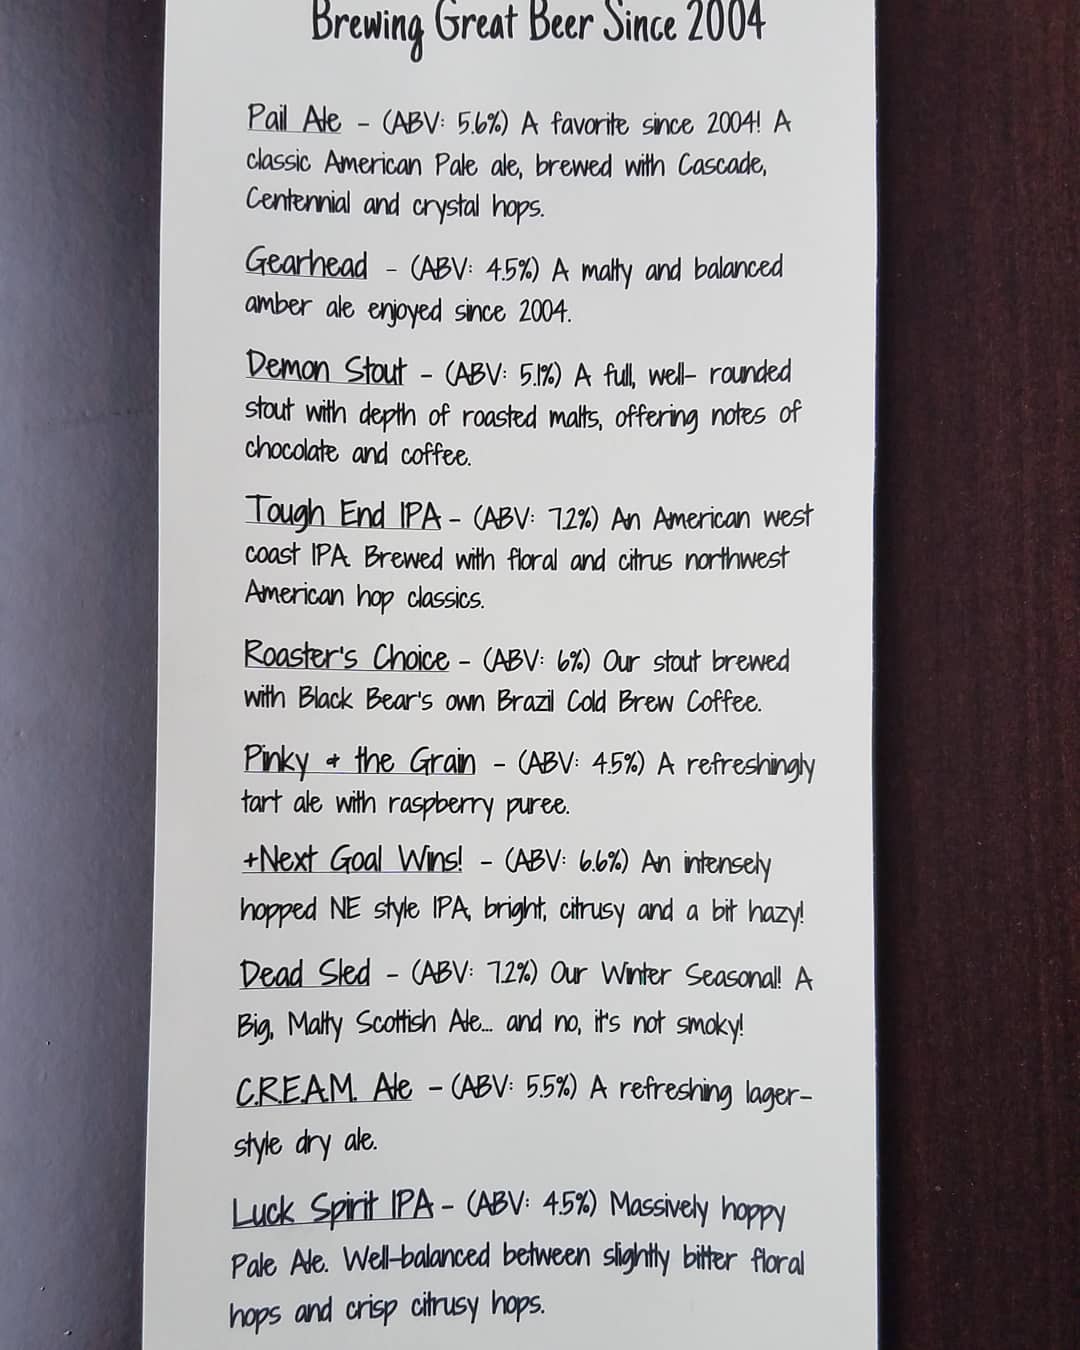 Brewing Great Beer Since 2004
Pail Ale - (ABV: 5.6%) A favorite since 2004! A
classic American Pale ale, brewed with Cascade,
Centennial and crystal hops.
Gearhead - (ABV: 4.5%) A malty and balanced
amber ale enjoyed since 2004.
Demon Stout - (ABV: 5.1%) A full, well- rounded
stout with depth of roasted malts, offering notes of
chocolate and coffee.
Tough End IPA - (ABV: 7.2%) An American west
coast IPA. Brewed with floral and citrus northwest
American hop classics.
Roaster's Choice - (ABV: 6%) Our stout brewed
with Black Bear's own Brazil Cold Brew Coffee.
Pinky & the Grain - (ABV: 4.5%) A refreshingly
tart ale with raspberry puree.
+Next Goal Wins! - (ABV: 6.6%) An intensely
hopped NE style IPA, bright, citrusy and a bit hazy!
Dead Sled - (ABV: 7.2%) Our Winter Seasonal! A
Big, Malty Scottish Ale... and no, it's not smoky!
C.R.E.A.M. Ale - (ABV: 5.5%) A refreshing lager-
style dry ale.
Luck Spirit IPA - (ABV: 4.5%) Massively hoppy
Pale Ale. Well-balanced between slightly bitter floral
hops and crisp citrusy hops.